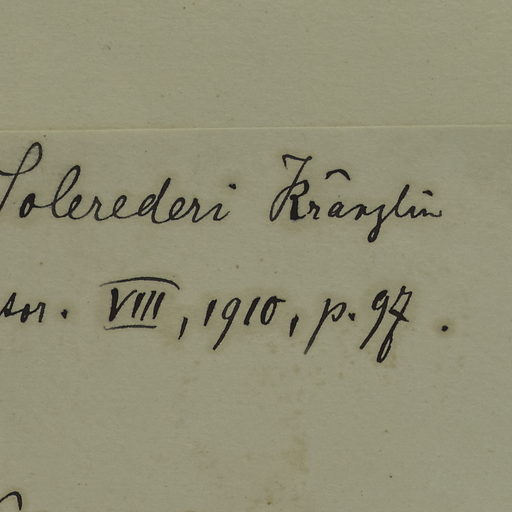 Solerederi Kränzlin
sor. VIII, 1910, p. 97.